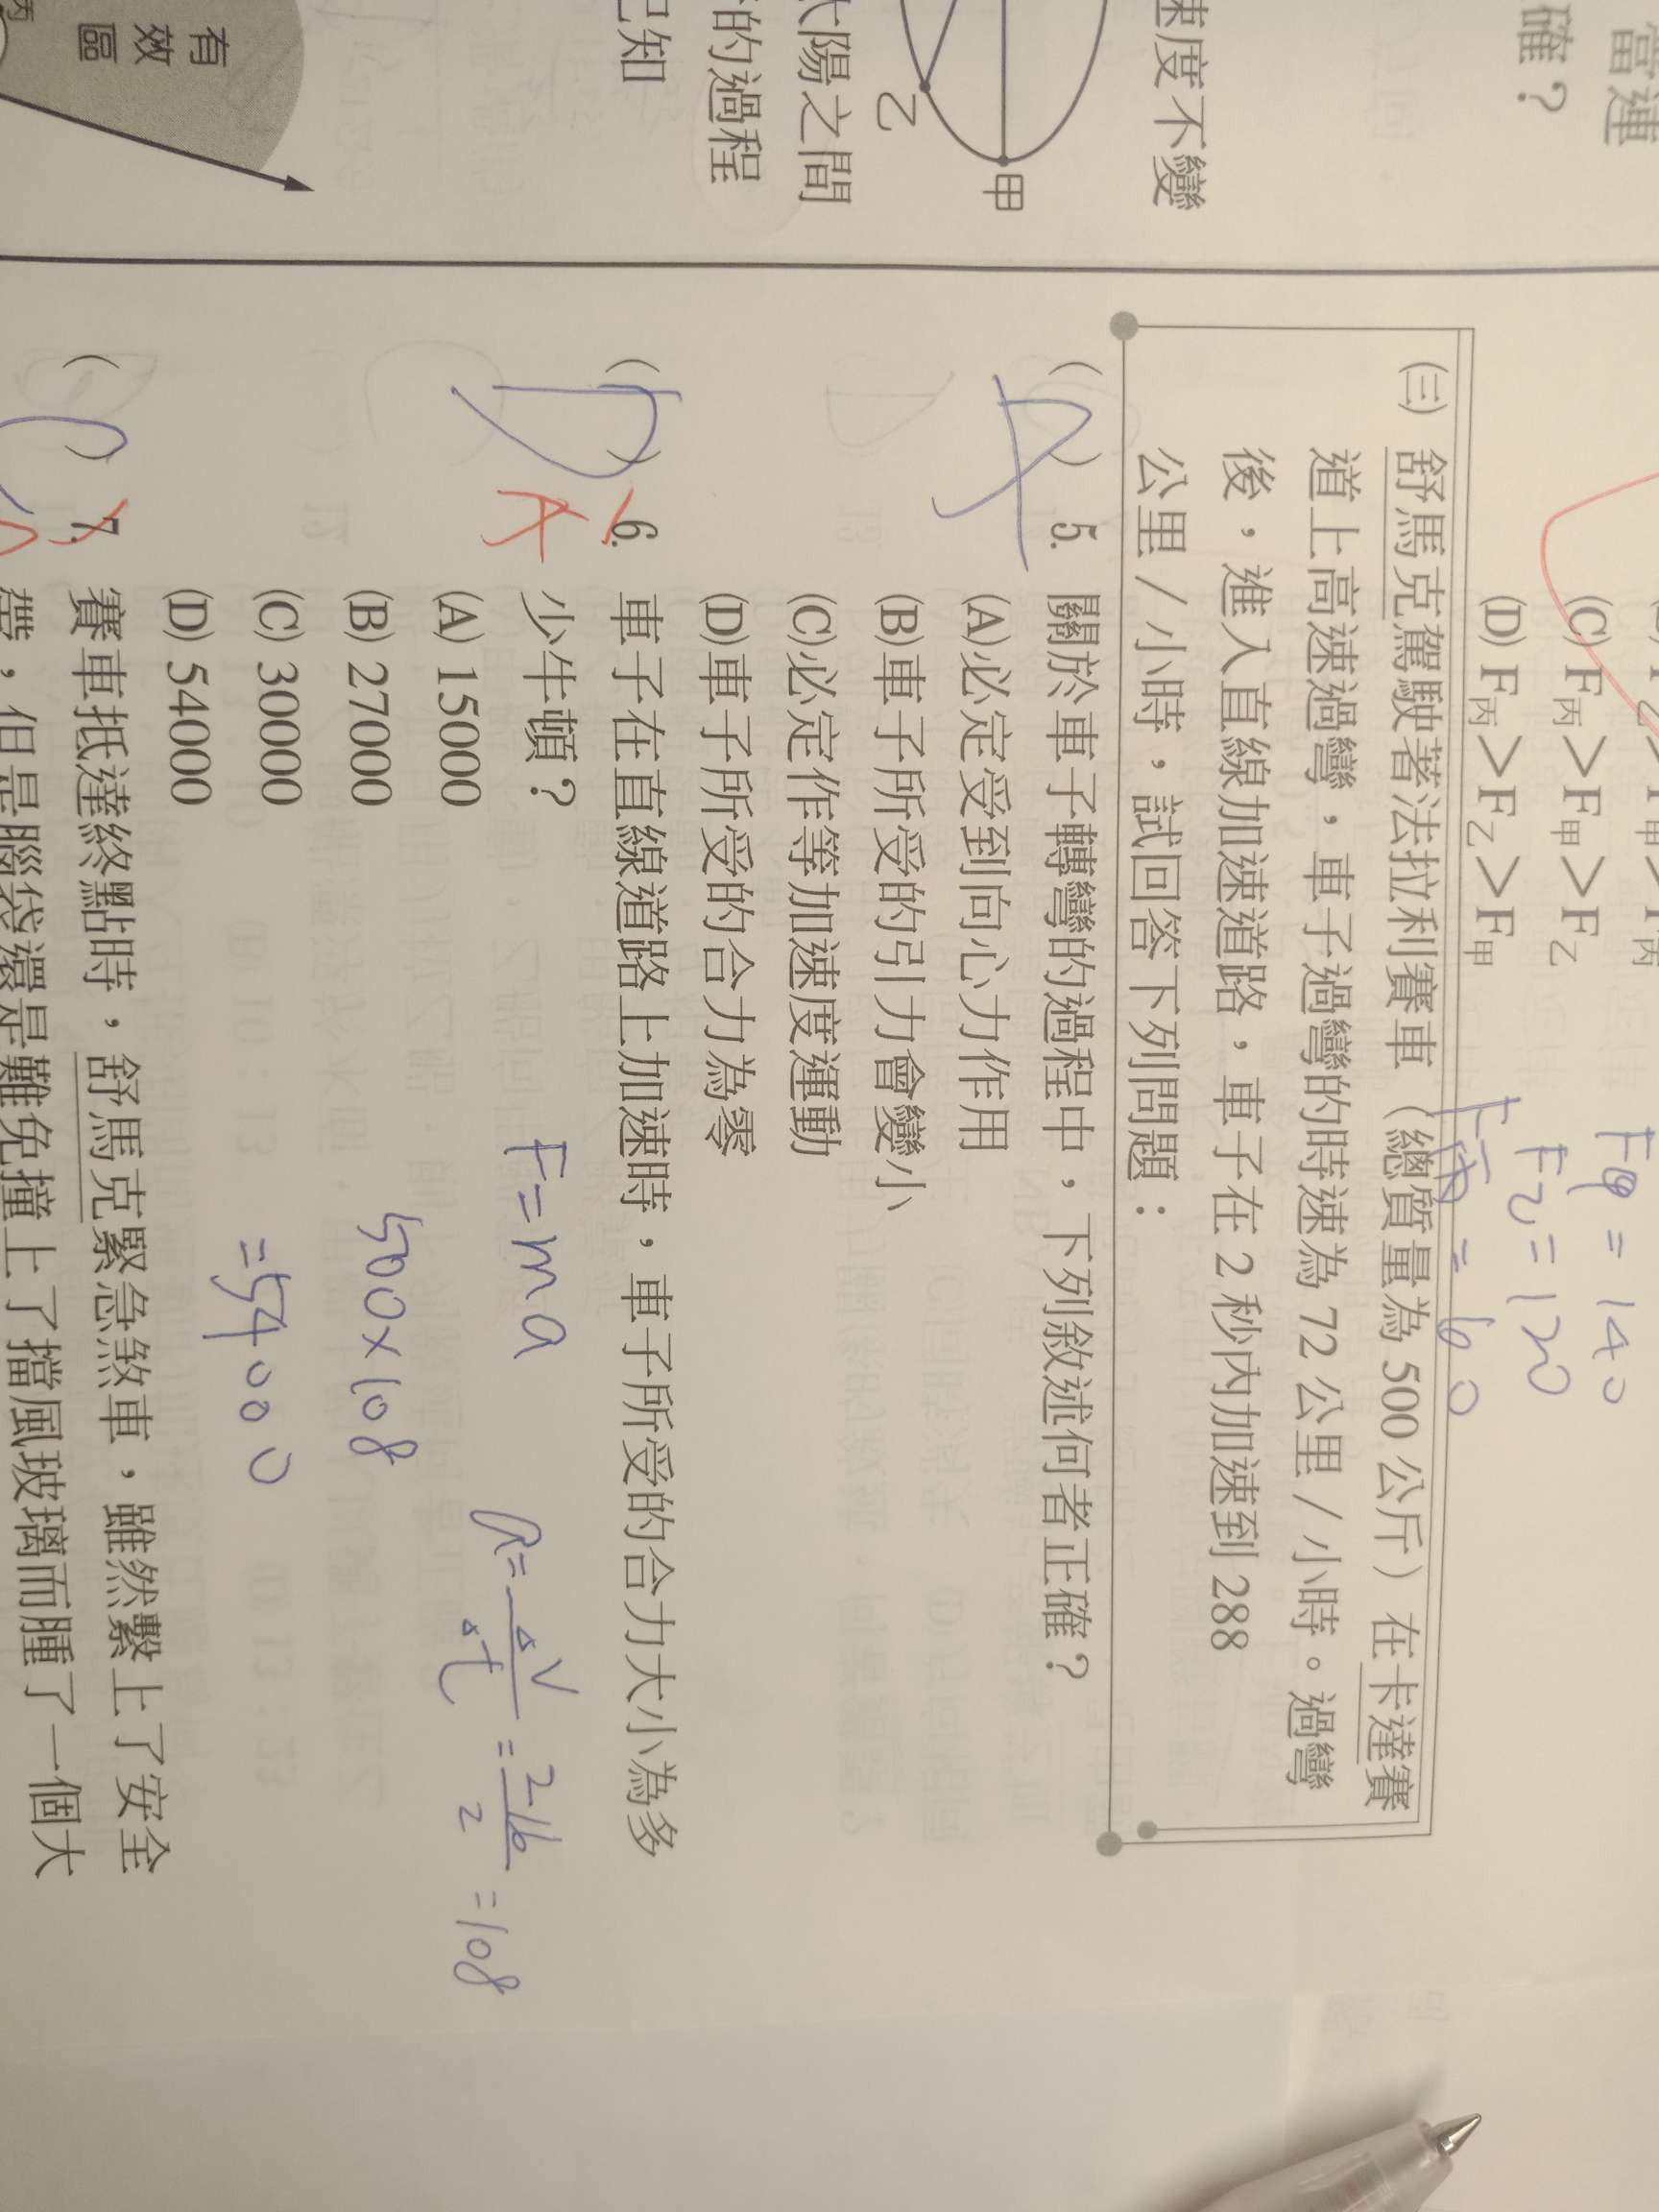 當運
確？
速度不變
甲
乙
太陽之間
的過程
已知
有
效
區
丙
(C) F丙＞F甲＞F乙
(D) F丙＞F乙＞F甲
F甲 = 140
F乙 = 120
F丙 = 60
(三) 舒馬克駕駛著法拉利賽車（總質量為 500 公斤）在卡達賽
道上高速過彎，車子過彎的時速為 72 公里／小時。過彎
後，進入直線加速道路，車子在 2 秒內加速到 288
公里／小時，試回答下列問題：
(A) 5. 關於車子轉彎的過程中，下列敘述何者正確？
(A)必定受到向心力作用
(B)車子所受的引力會變小
(C)必定作等加速度運動
(D)車子所受的合力為零
(D) 6. 車子在直線道路上加速時，車子所受的合力大小為多
A 少牛頓？
(A) 15000
(B) 27000
(C) 30000
(D) 54000
F=ma
500×108
=54000
a=△V/△t=216/2=108
(C) 7. 賽車抵達終點時，舒馬克緊急煞車，雖然繫上了安全
帶，但是腦袋還是難免撞上了擋風玻璃而腫了一個大